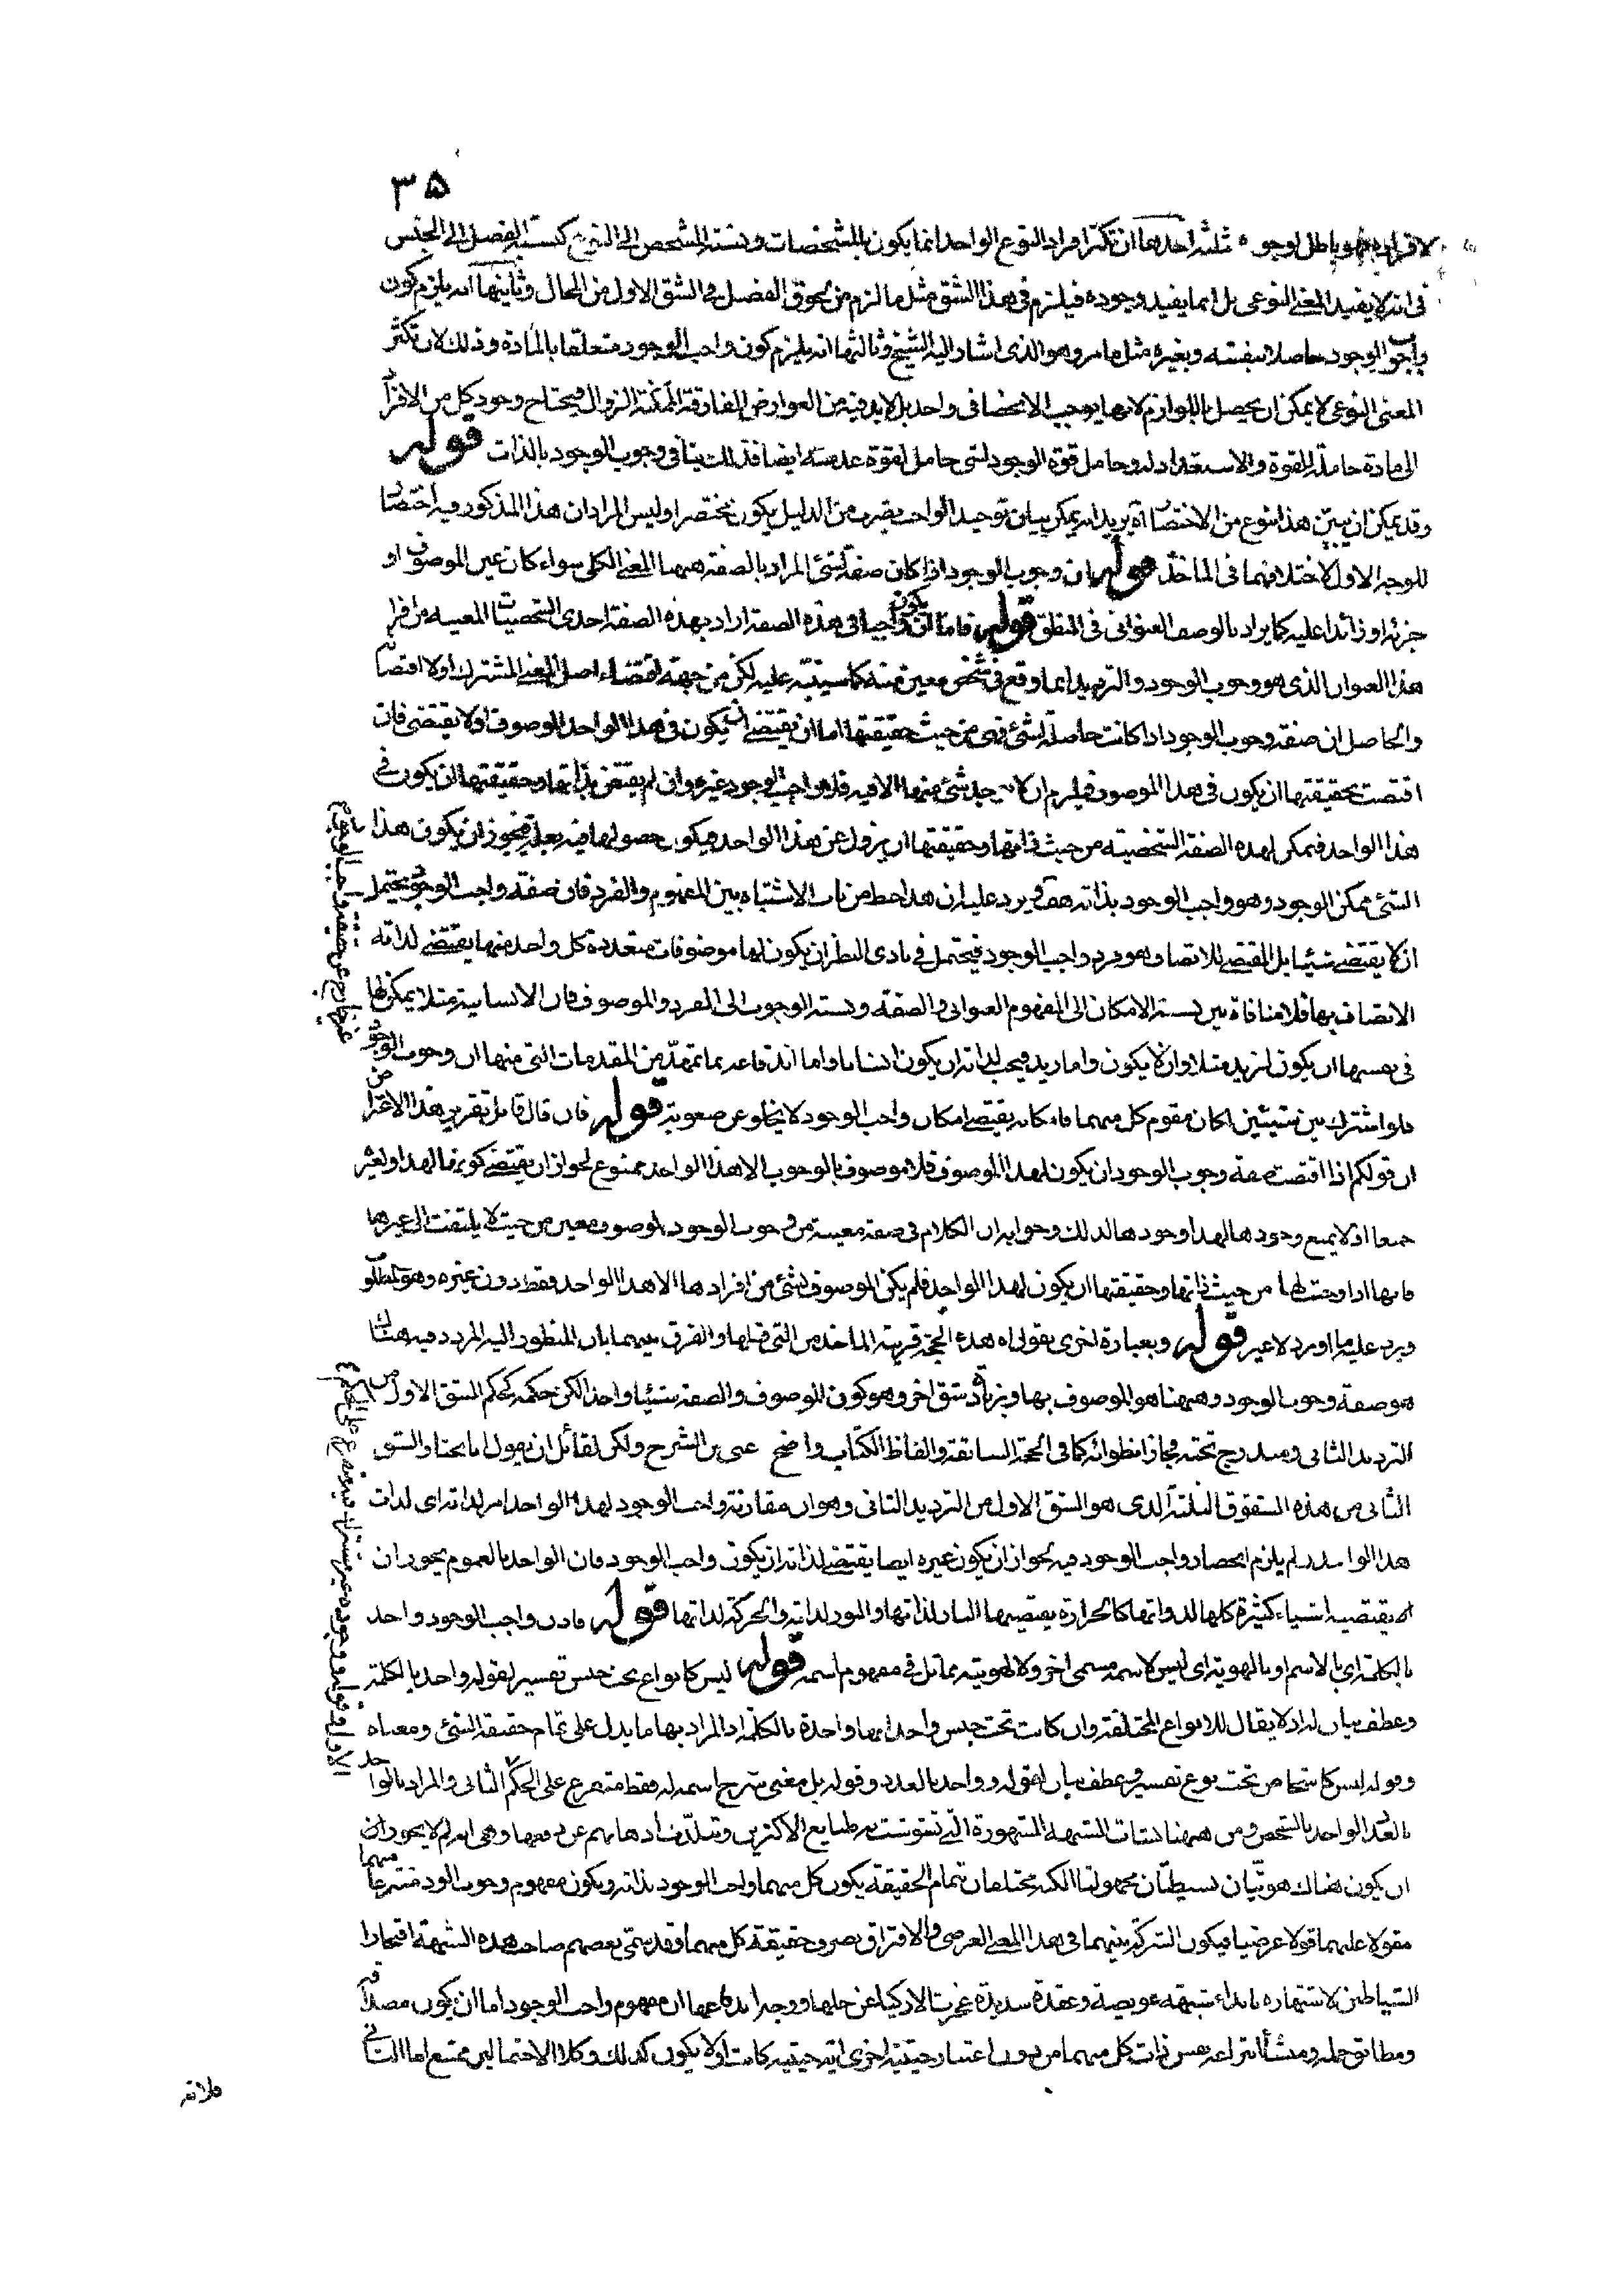 ٣۵
لافراده وهو باطل لوجوه ثلثه احدها ان تكثر افراد النوع الواحد انما يكون بالمشخصات ونسبته المشخص الى النوع كنسبته الفصل الى الجنس
فى انه لا يفيد المعنى النوعى بل انما يفيد وجوده فيلزم فى هذا الشق مثل ما لزم من لحوق الفصل فى الشق الاول من المحال وثانيها انه يلزم كون
واجب الوجود حاصلا بنفسه وبغيره مثل ما مر وهو الذى اشار اليه الشيخ وثالثها انه يلزم كون واجب الوجود متعلقا بالمادة وذلك لان تكثر
المعنى النوعى لا يمكن ان يحصل باللوازم لانها يوجب الانحصار فى واحد بل لابد فيه من العوارض المفارقة الممكنة الزوال فيحتاج وجود كل من الافراد
الى مادة حاملة للقوة والاستعداد له وحامل قوة الوجود لشى حامل لقوة عدمه ايضا فذلك ينافى وجوب الوجود بالذات قوله
وقد يمكن ان نبين هذا بنوع من الاختصار آه يريد انه يمكن بيان توحيد الواجب بضرب من الدليل يكون مختصرا وليس المراد ان هذا المذكور فيه اختصار
للوجه الاول لاختلافهما فى الماخذ قوله ان وجوب الوجود اذا كان صفة لشئ المراد بالصفة ههنا المعنى الكلى سواء كان عين الموصوف او
جزئه او زائدا عليه كما يراد بالوصف العنوانى فى المنطق قوله فاما ان يكون واجبا فى هذه الصفة اراد بهذه الصفة احدى الشخصيات المعينه من افراد
هذا العنوان الذى هو وجوب الوجود والترديد انما وقع فى شخص معين منه كما سينبّه عليه لكن من جهة اقتضاء اصل المعنى المشترك او لا اقتضائه
والحاصل ان صفة وجوب الوجود اذا كانت حاصلة لشئ فهى من حيث حقيقتها اما ان يقتضى ان يكون فى هذا الواحد الموصوف او لا يقتضى فان
اقتضت بحقيقتها ان يكون فى هذا الموصوف فيلزم ان لا يوجد شئ منها الا فيه فلا واجب الوجود غيره وان لم يقتض بذاتها وحقيقتها ان يكون فى
هذا الواحد فيمكن لهذه الصفة الشخصية من حيث ذاتها وحقيقتها ان يزول عن هذا الواحد فيكون حصولها فيه بعلة فيجوز ان يكون هذا
الشئ ممكن الوجود وهو واجب الوجود بذاته هف ويرد عليه ان هذا خلط من باب الاشتباه بين المفهوم والفرد فان صفة واجب الوجود يحتمل
ان لا يقتضى شيئا بل المقتضى للاتصاف هو فرد واجب الوجود فيحتمل فى بادى النظر ان يكون لها موضوفات متعددة كل واحد منها يقتضى لذاته
الاتصاف بها فلا منافاة بين نسبته الامكان الى المفهوم العنوانى والصفة ونسبته الوجوب الى الفرد والموصوف فان الانسانية مثلا يمكن لها
فى نفسها ان يكون لزيد مثلا وان لا يكون واما زيد فيجب لذاته ان يكون انسانا واما اندفاعه بما تمهد من المقدمات التى منها ان وجوب الوجود
لو اشترك بين شيئين لكان مقوم كل منهما فامكانه يقتضى امكان واجب الوجود لا يخلو عن صعوبة قوله فان قال قائل تقرير هذا الاعتراض
ان قولكم اذا اقتضت صفة وجوب الوجود ان يكون لهذا الموصوف فلا موصوف بالوجوب الا هذا الواحد ممنوع لجواز ان يقتضى كونها لهذا ولغيره
جميعا اذ لا يمنع وجودها لهذا وجودها لذلك وجوابه ان الكلام فى صفة معينة من وجوب الوجود لموصوف معين من حيث لا يلتفت الى غيرها
فانها اذا وجبت لها من حيث ذاتها وحقيقتها ان يكون لهذا الواحد فلم يكن الموصوف بشئ من افرادها الا هذا الواحد فقط دون غيره وهو المطلوب
ويرد عليه ما اورد لا غير قوله وبعبارة اخرى يقول آه هذه الحجة قريبة الماخذ من التى قبلها والفرق بينهما بان المنظور اليه المردد فيه هناك
هو صفة وجوب الوجود وههنا هو الموصوف بها وبزيادة شق اخر وهو كون الموصوف والصفة شيئا واحدا لكن حكمه كحكم الشق الاول من
الترديد الثانى ومندرج تحته مجاز انطوائه كما فى الحجة السابقة والفاظ الكتاب واضح غنى من الشرح ولكن لقائل ان يقول انا نختار الشق
الثانى من هذه الشقوق الثلثة الذى هو الشق الاول من الترديد الثانى وهو ان مقارنة واجب الوجود لهذا الواحد امر لذاته اى لذات
هذا الواحد لم يلزم انحصار واجب الوجود فيه لجواز ان يكون غيره ايضا يقتضى لذاته ان يكون واجب الوجود فان الواحد بالعموم يجوز ان
يقتضيه اشياء كثيرة كلها لذواتها كالحرارة يقتضيها النار لذاتها والنور لذاته والحركة لذاتها قوله فاذن واجب الوجود واحد
بالكلمة اى بالاسم او بالهوية اى ليس لاسمه مسمى اخر ولا لهويته مماثل فى مفهوم اسمه قوله ليس كانواع تحت جنس تفسير لقوله واحد بالكلمة
وعطف بيان له اذ لا يقال للانواع المختلفة وان كانت تحت جنس واحد انها واحدة بالكلمة اذ المراد بها ما يدل على تمام حقيقة الشئ ومعناه
وقوله ليس كاشخاص تحت نوع تفسير وعطف بيان لقوله وواحد بالعدد وقوله بل معنى شرح اسمه له فقط متفرع على الحكم الثانى والمراد بالواحد
بالعدد الواحد بالشخص ومن ههنا الشبهة المشهورة التى تشوشت طبايع الاكثرين وتبلدت اذهانهم عن دفعها وهى انه لم لا يجوز ان
ان يكون هناك هويتان بسيطتان مجهولتا الكنه مختلفتان تمام الحقيقة يكون كل منهما واجب الوجود بذاته ويكون مفهوم وجوب الوجود منتزعا منهما
مقولا عليهما قولا عرضيا فيكون الشركة بينهما فى هذا المعنى العرضى والافتراق بصرف حقيقة كل منهما وقد يسمى بعضهم صاحب هذه الشبهة افتخار
الشياطين لاشتهاره بابداء شبهة عويصة وعقدة شديدة عجزت الاذكياء عن حلها ووجه اندفاعها ان مفهوم واجب الوجود اما ان يكون مصداقه
ومطابق حمله ومنشأ انتزاعه نفس ذات كل منهما من دون اعتبار حيثية اخرى اية حيثية كانت او لا يكون كذلك وكلا الاحتمالين ممتنع اما الثانى
فلانه